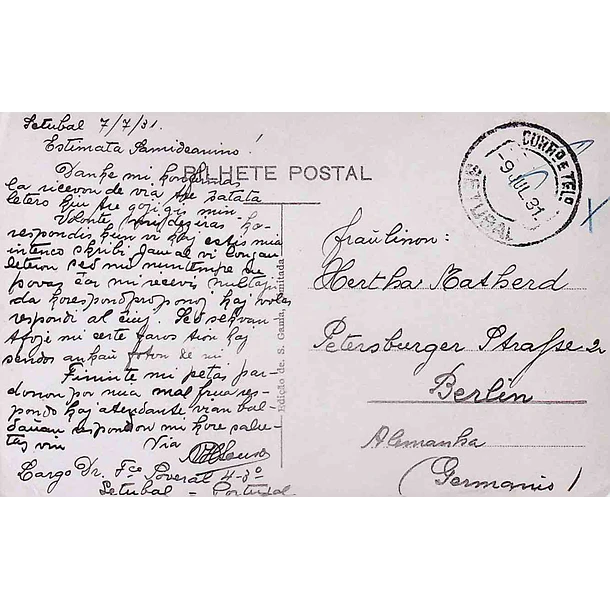 Setubal 7/7/31.
Estimata Samideanino!
BILHETE POSTAL
Danke mi konfirmas
la ricevon de via tre ŝatata
letero kiu tre ĝojigis min
Volonte mi deziras ko-
respondis kun vi kaj estis mia
intenco skribi al vi longan
leteron sed mi nuntempe ne
povas ĉar mi ricevis multaj
da korespondproponoj kaj volas
respondi al ĉiuj. Sed sekvan
foje mi certe faros tion kaj
sendos ankaŭ foton de mi
Fininte mi petas par-
donon por mia mal frua res-
pondo kaj atendante vian bal-
daŭan respondon mi kore salu-
tas vin Via
Largo Dr. Fco Poveral 4-3º
Setubal - Portugal.
Edição de S. Gama, Limitada
CORREIO E TELO.
-9 JUL. 31
SETUBAL
Fraŭlinon:
Hertha Katherd
Petersburger Straße 2
Berlin
Alemanha
(Germanio)